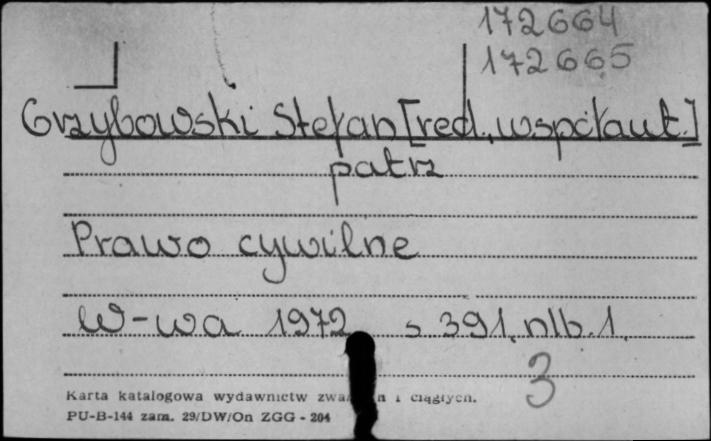 172664
172665
Grzybowski Stefan [red., współaut.]
patrz
Prawo cywilne
W-wa 1972 s 391, nlb. 1.
3
Karta katalogowa wydawnictw i ciągłych.
PU-B-144 zam. 29/DW/On ZGG - 204